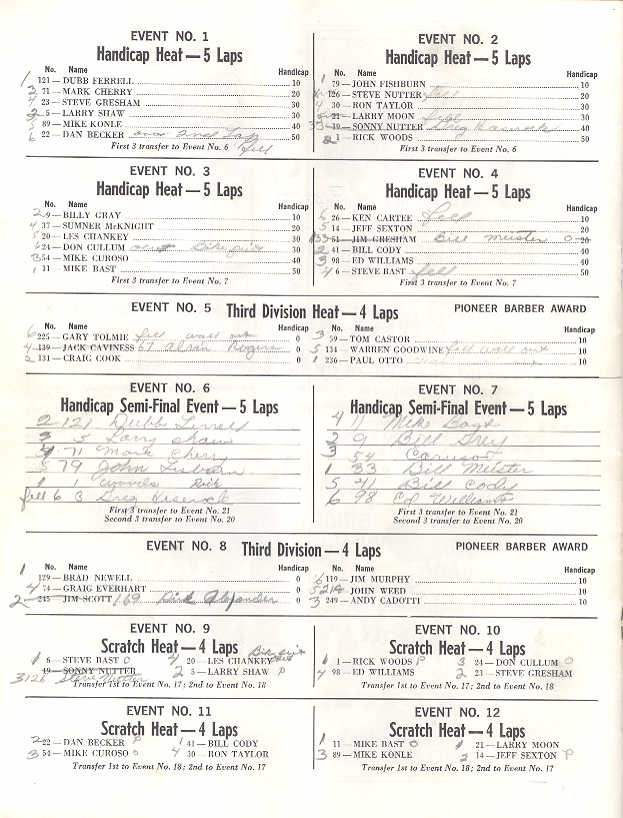 EVENT NO. 1
Handicap Heat — 5 Laps
No. Name Handicap
1 121 — DUBB FERRELL 10
3 71 — MARK CHERRY 20
4 23 — STEVE GRESHAM 30
2 5 — LARRY SHAW 30
5 89 — MIKE KONLE 40
6 22 — DAN BECKER over and Lap fell 50
First 3 transfer to Event No. 6
EVENT NO. 2
Handicap Heat — 5 Laps
No. Name Handicap
1 79 — JOHN FISHBURN 10
126 — STEVE NUTTER fell 20
4 30 — RON TAYLOR 30
5 21 — LARRY MOON fell 30
3 33 19 — SONNY NUTTER Greg 40
2 1 — RICK WOODS 50
First 3 transfer to Event No. 6
EVENT NO. 3
Handicap Heat — 5 Laps
No. Name Handicap
2 9 — BILLY GRAY 10
4 37 — SUMNER McKNIGHT 20
5 20 — LES CHANKEY 30
6 24 — DON CULLUM 30
3 54 — MIKE CUROSO 40
1 11 — MIKE BAST 50
First 3 transfer to Event No. 7
EVENT NO. 4
Handicap Heat — 5 Laps
No. Name Handicap
6 26 — KEN CARTEE fell 10
5 14 — JEFF SEXTON 20
1 33 51 — JIM GRESHAM Bill Meister 0 20
2 41 — BILL CODY 40
3 98 — ED WILLIAMS 40
4 6 — STEVE BAST fell 50
First 3 transfer to Event No. 7
EVENT NO. 5 Third Division Heat — 4 Laps PIONEER BARBER AWARD
No. Name Handicap
6 225 — GARY TOLMIE fell wall out 0
4 139 — JACK CAVINESS 67 Alvin Rogers 0
2 131 — CRAIG COOK 0
No. Name Handicap
3 59 — TOM CASTOR 10
5 134 — WARREN GOODWINE fell wall out 10
1 236 — PAUL OTTO 10
EVENT NO. 6
Handicap Semi-Final Event — 5 Laps
2 121 Dubb Ferrell
3 5 Larry Shaw
4 71 Mark Cherry
5 79 John
1 1 Woods Rick
fell 6 3 Greg
First 3 transfer to Event No. 21
Second 3 transfer to Event No. 20
EVENT NO. 7
Handicap Semi-Final Event — 5 Laps
4 11 Mike Bast
2 9 Bill Grey
3 54
1 33 Bill Meister
5 41 Bill Cody
6 98 Ed Williams
First 3 transfer to Event No. 21
Second 3 transfer to Event No. 20
EVENT NO. 8 Third Division — 4 Laps PIONEER BARBER AWARD
No. Name Handicap
1 129 — BRAD NEWELL 0
4 74 — GRAIG EVERHART 0
2 245 — JIM SCOTT 169 Dick Alexander 0
No. Name Handicap
6 119 — JIM MURPHY 10
5 214 — JOHN WEED 10
3 249 — ANDY CADOTTI 10
EVENT NO. 9
Scratch Heat — 4 Laps
1 6 — STEVE BAST O 4 20 — LES CHANKEY
19 — SONNY NUTTER 2 5 — LARRY SHAW P
3 126 Steve Nutter
Transfer 1st to Event No. 17; 2nd to Event No. 18
EVENT NO. 10
Scratch Heat — 4 Laps
1 1 — RICK WOODS P 3 24 — DON CULLUM O
4 98 — ED WILLIAMS 2 23 — STEVE GRESHAM
Transfer 1st to Event No. 17; 2nd to Event No. 18
EVENT NO. 11
Scratch Heat — 4 Laps
2 22 — DAN BECKER P 1 41 — BILL CODY
3 54 — MIKE CUROSO O 4 30 — RON TAYLOR
Transfer 1st to Event No. 18; 2nd to Event No. 17
EVENT NO. 12
Scratch Heat — 4 Laps
1 11 — MIKE BAST O 21 — LARRY MOON
3 89 — MIKE KONLE 2 14 — JEFF SEXTON P
Transfer 1st to Event No. 18; 2nd to Event No. 17